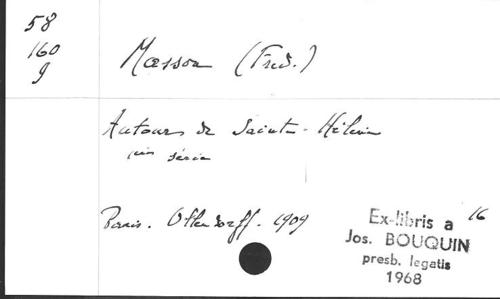 58
160
9
Masson (Fred.)
Autour de Sainte-Hélène
1ère série
Paris. Ollendorff. 1909
16
Ex-libris a
Jos. BOUQUIN
presb. legatis
1968